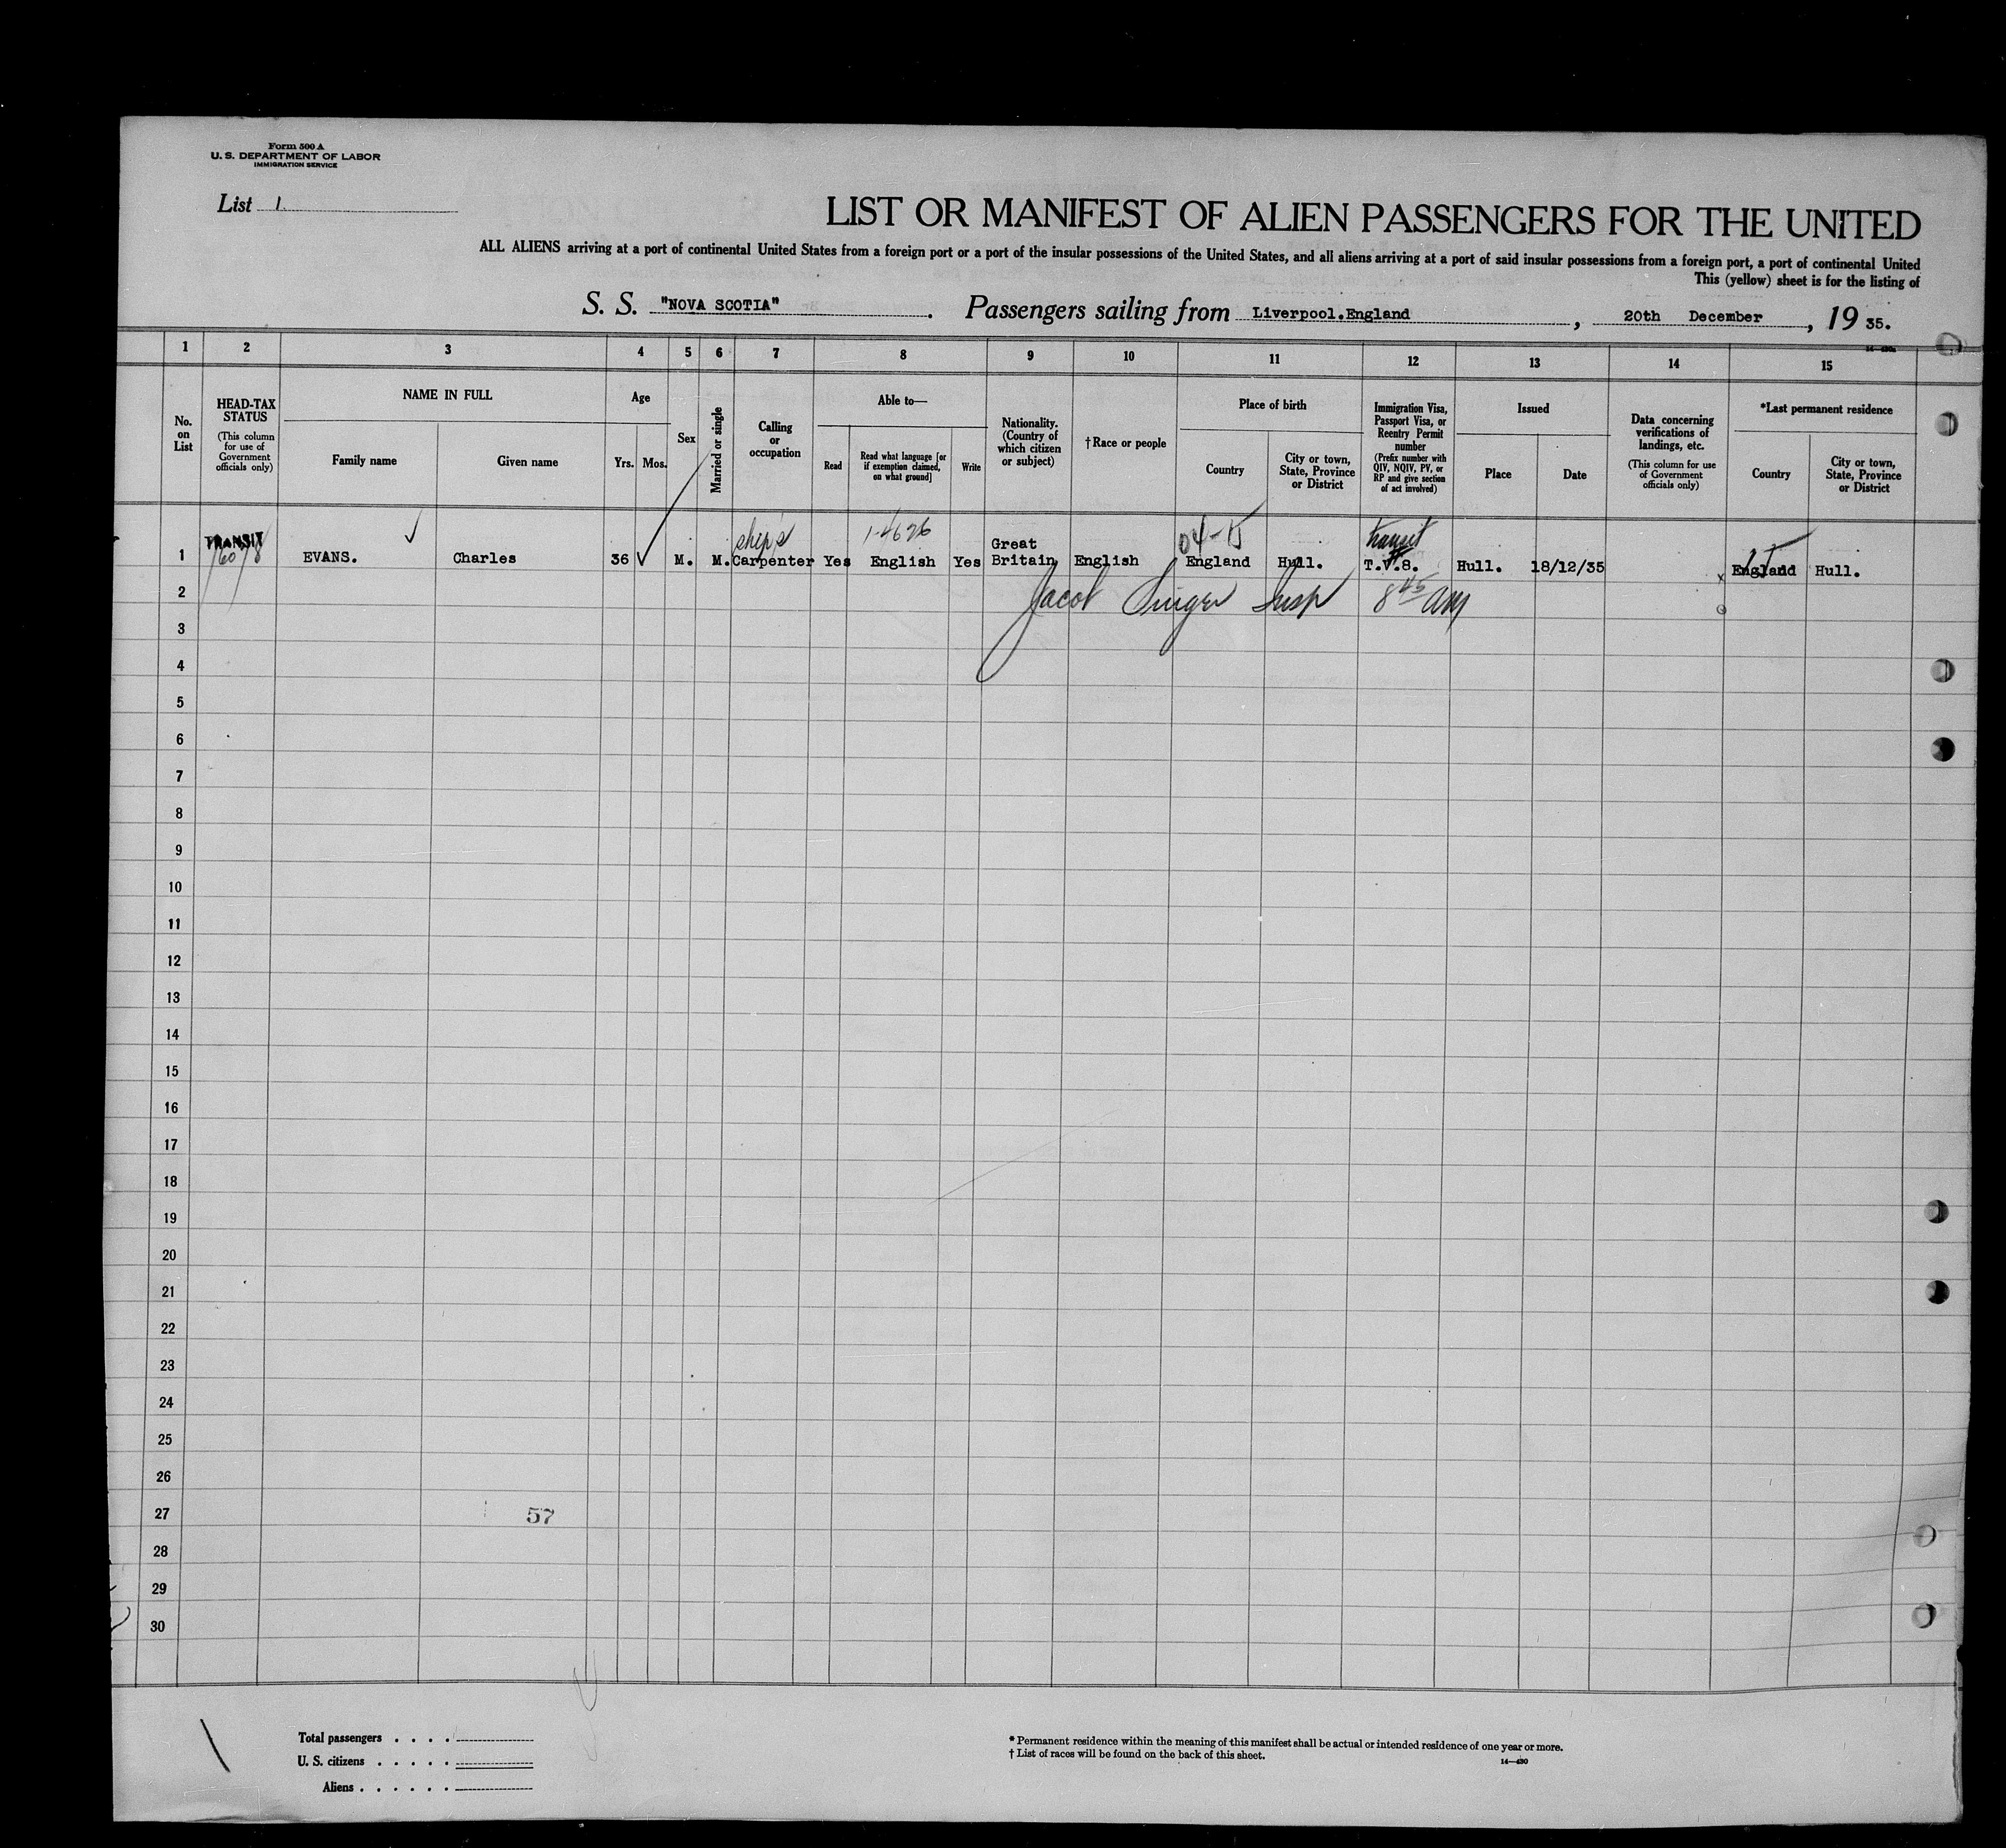 Form 500 A
U. S. DEPARTMENT OF LABOR
IMMIGRATION SERVICE
List 1
LIST OR MANIFEST OF ALIEN PASSENGERS FOR THE UNITED
ALL ALIENS arriving at a port of continental United States from a foreign port or a port of the insular possessions of the United States, and all aliens arriving at a port of said insular possessions from a foreign port, a port of continental United
This (yellow) sheet is for the listing of
S. S. "NOVA SCOTIA". Passengers sailing from Liverpool.England, 20th December, 19 35.
1 2 3 4 5 6 7 8 9 10 11 12 13 14 15
No. on List
HEAD-TAX STATUS (This column for use of Government officials only)
NAME IN FULL
Family name Given name
Age
Yrs. Mos.
Sex
Married or single
Calling or occupation
Able to—
Read Read what language [or if exemption claimed, on what ground] Write
Nationality. (Country of which citizen or subject)
†Race or people
Place of birth
Country City or town, State, Province or District
Immigration Visa, Passport Visa, or Reentry Permit number (Prefix number with QIV, NQIV, PV, or RP and give section of act involved)
Issued
Place Date
Data concerning verifications of landings, etc. (This column for use of Government officials only)
*Last permanent residence
Country City or town, State, Province or District
TRANSIT ship's 1-4626 04-15 transit
1 EVANS. Charles 36 M. M. Carpenter Yes English Yes Great Britain English England Hull. T.V.8. Hull. 18/12/35 England Hull.
2 Jacob Singer Insp 8 45 AM
3
4
5
6
7
8
9
10
11
12
13
14
15
16
17
18
19
20
21
22
23
24
25
26
27 57
28
29
30
Total passengers . . . .
U. S. citizens . . . . .
Aliens . . . . . .
* Permanent residence within the meaning of this manifest shall be actual or intended residence of one year or more.
† List of races will be found on the back of this sheet.
14—430